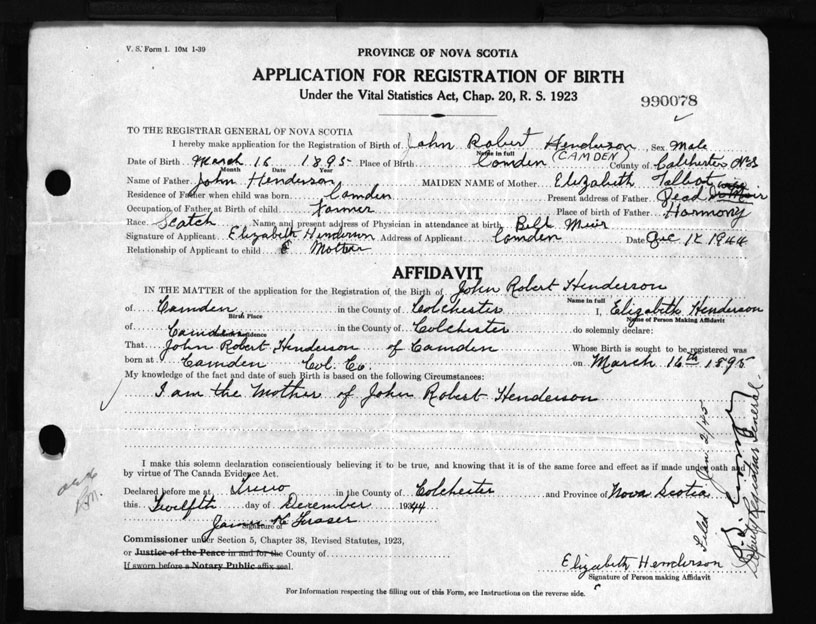 V. S. Form 1. 10M 1-39
PROVINCE OF NOVA SCOTIA
APPLICATION FOR REGISTRATION OF BIRTH
Under the Vital Statistics Act, Chap. 20, R. S. 1923
990078
TO THE REGISTRAR GENERAL OF NOVA SCOTIA
I hereby make application for the Registration of Birth of John Robert Henderson, Sex Male
Name in full
(CAMDEN)
Date of Birth March 16 1895 Place of Birth Camden County of Colchester N.S
Month Date Year
Name of Father John Henderson MAIDEN NAME of Mother Elizabeth Talbot
Residence of Father when child was born, Camden Present address of Father Dead
Occupation of Father at Birth of child Farmer Place of birth of Father Harmony
Race Scotch Name and present address of Physician in attendance at birth Bell Muir
Signature of Applicant Elizabeth Henderson Address of Applicant Camden Date Dec 12 1944
Relationship of Applicant to child Mother
AFFIDAVIT
IN THE MATTER of the application for the Registration of the Birth of John Robert Henderson
Name in full
of Camden in the County of Colchester I, Elizabeth Henderson
Birth Place Name of Person Making Affidavit
of Camden in the County of Colchester do solemnly declare:
Residence
That John Robert Henderson of Camden Whose Birth is sought to be registered was
born at Camden Col. Co. on March 16th 1895
My knowledge of the fact and date of such Birth is based on the following Circumstances:
I am the Mother of John Robert Henderson
I make this solemn declaration conscientiously believing it to be true, and knowing that it is of the same force and effect as if made under oath and
by virtue of The Canada Evidence Act.
Declared before me at Truro in the County of Colchester and Province of Nova Scotia
this Twelfth day of December 1944
James K Fraser
Signature of
Commissioner under Section 5, Chapter 38, Revised Statutes, 1923,
or Justice of the Peace in and for the County of
If sworn before a Notary Public affix seal.
Elizabeth Henderson
Signature of Person making Affidavit
For Information respecting the filling out of this Form, see Instructions on the reverse side.
Filed Jan 2/45
Deputy Registrar General.